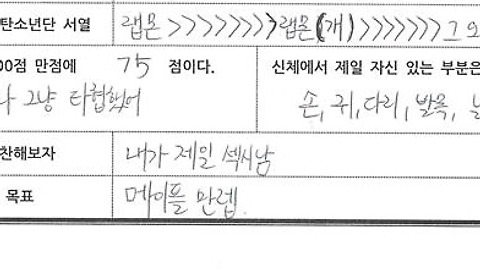 탄소년단 서열 랩몬 >>>>>>>> 랩몬(개) >>>>>>>> 그 외
00점 만점에 75 점이다. 신체에서 제일 자신 있는 부분은
나 그냥 타협했어 손, 귀, 다리, 발목,
찬해보자 내가 제일 섹시남
목표 메이플 만렙.